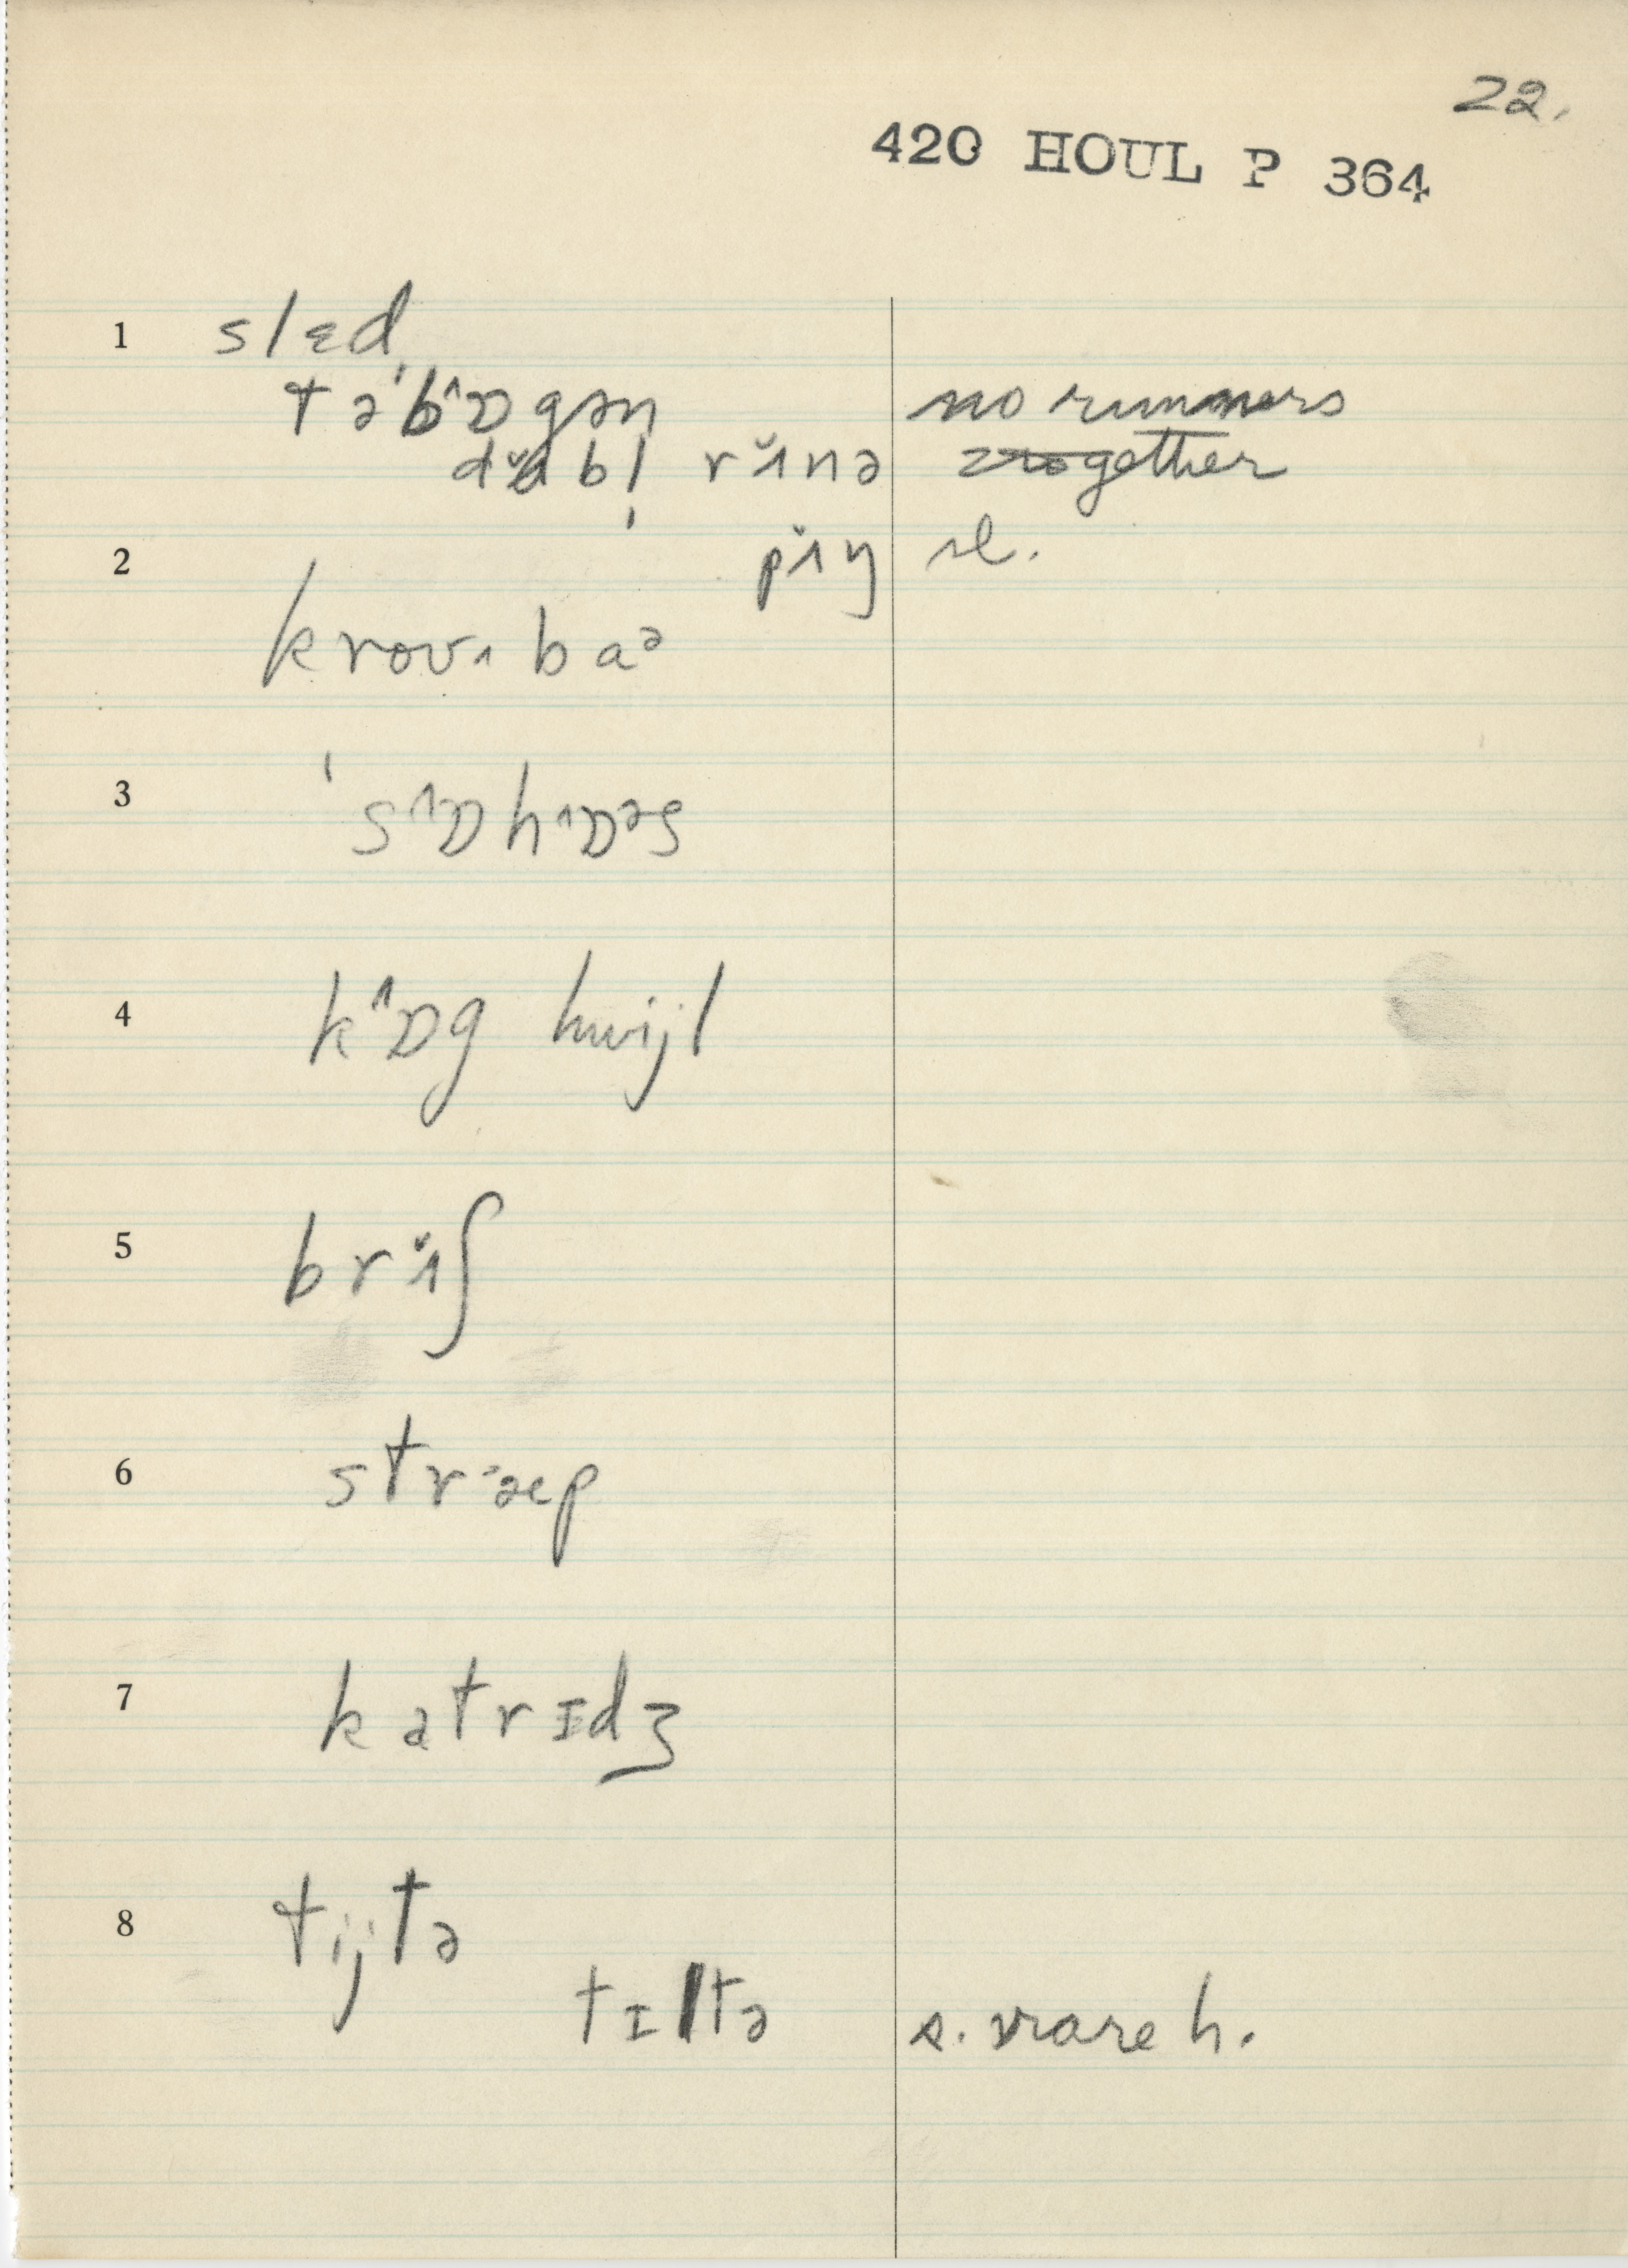 22.
420 HOUL P 364
1 slɛd
tə'bˆɒgən no runners
dʌ̆bl̩ rɪ̆nə 2 together
2 pɪ̆ŋ sl.
krovɪ baᵊ
3 'sˆɒhˆɒᵊs
4 kˆɒg hwijl
5 brɪ̆ʃ
6 stræp
7 katrɪdʒ
8 tijtə
tɪltə s. rare h.